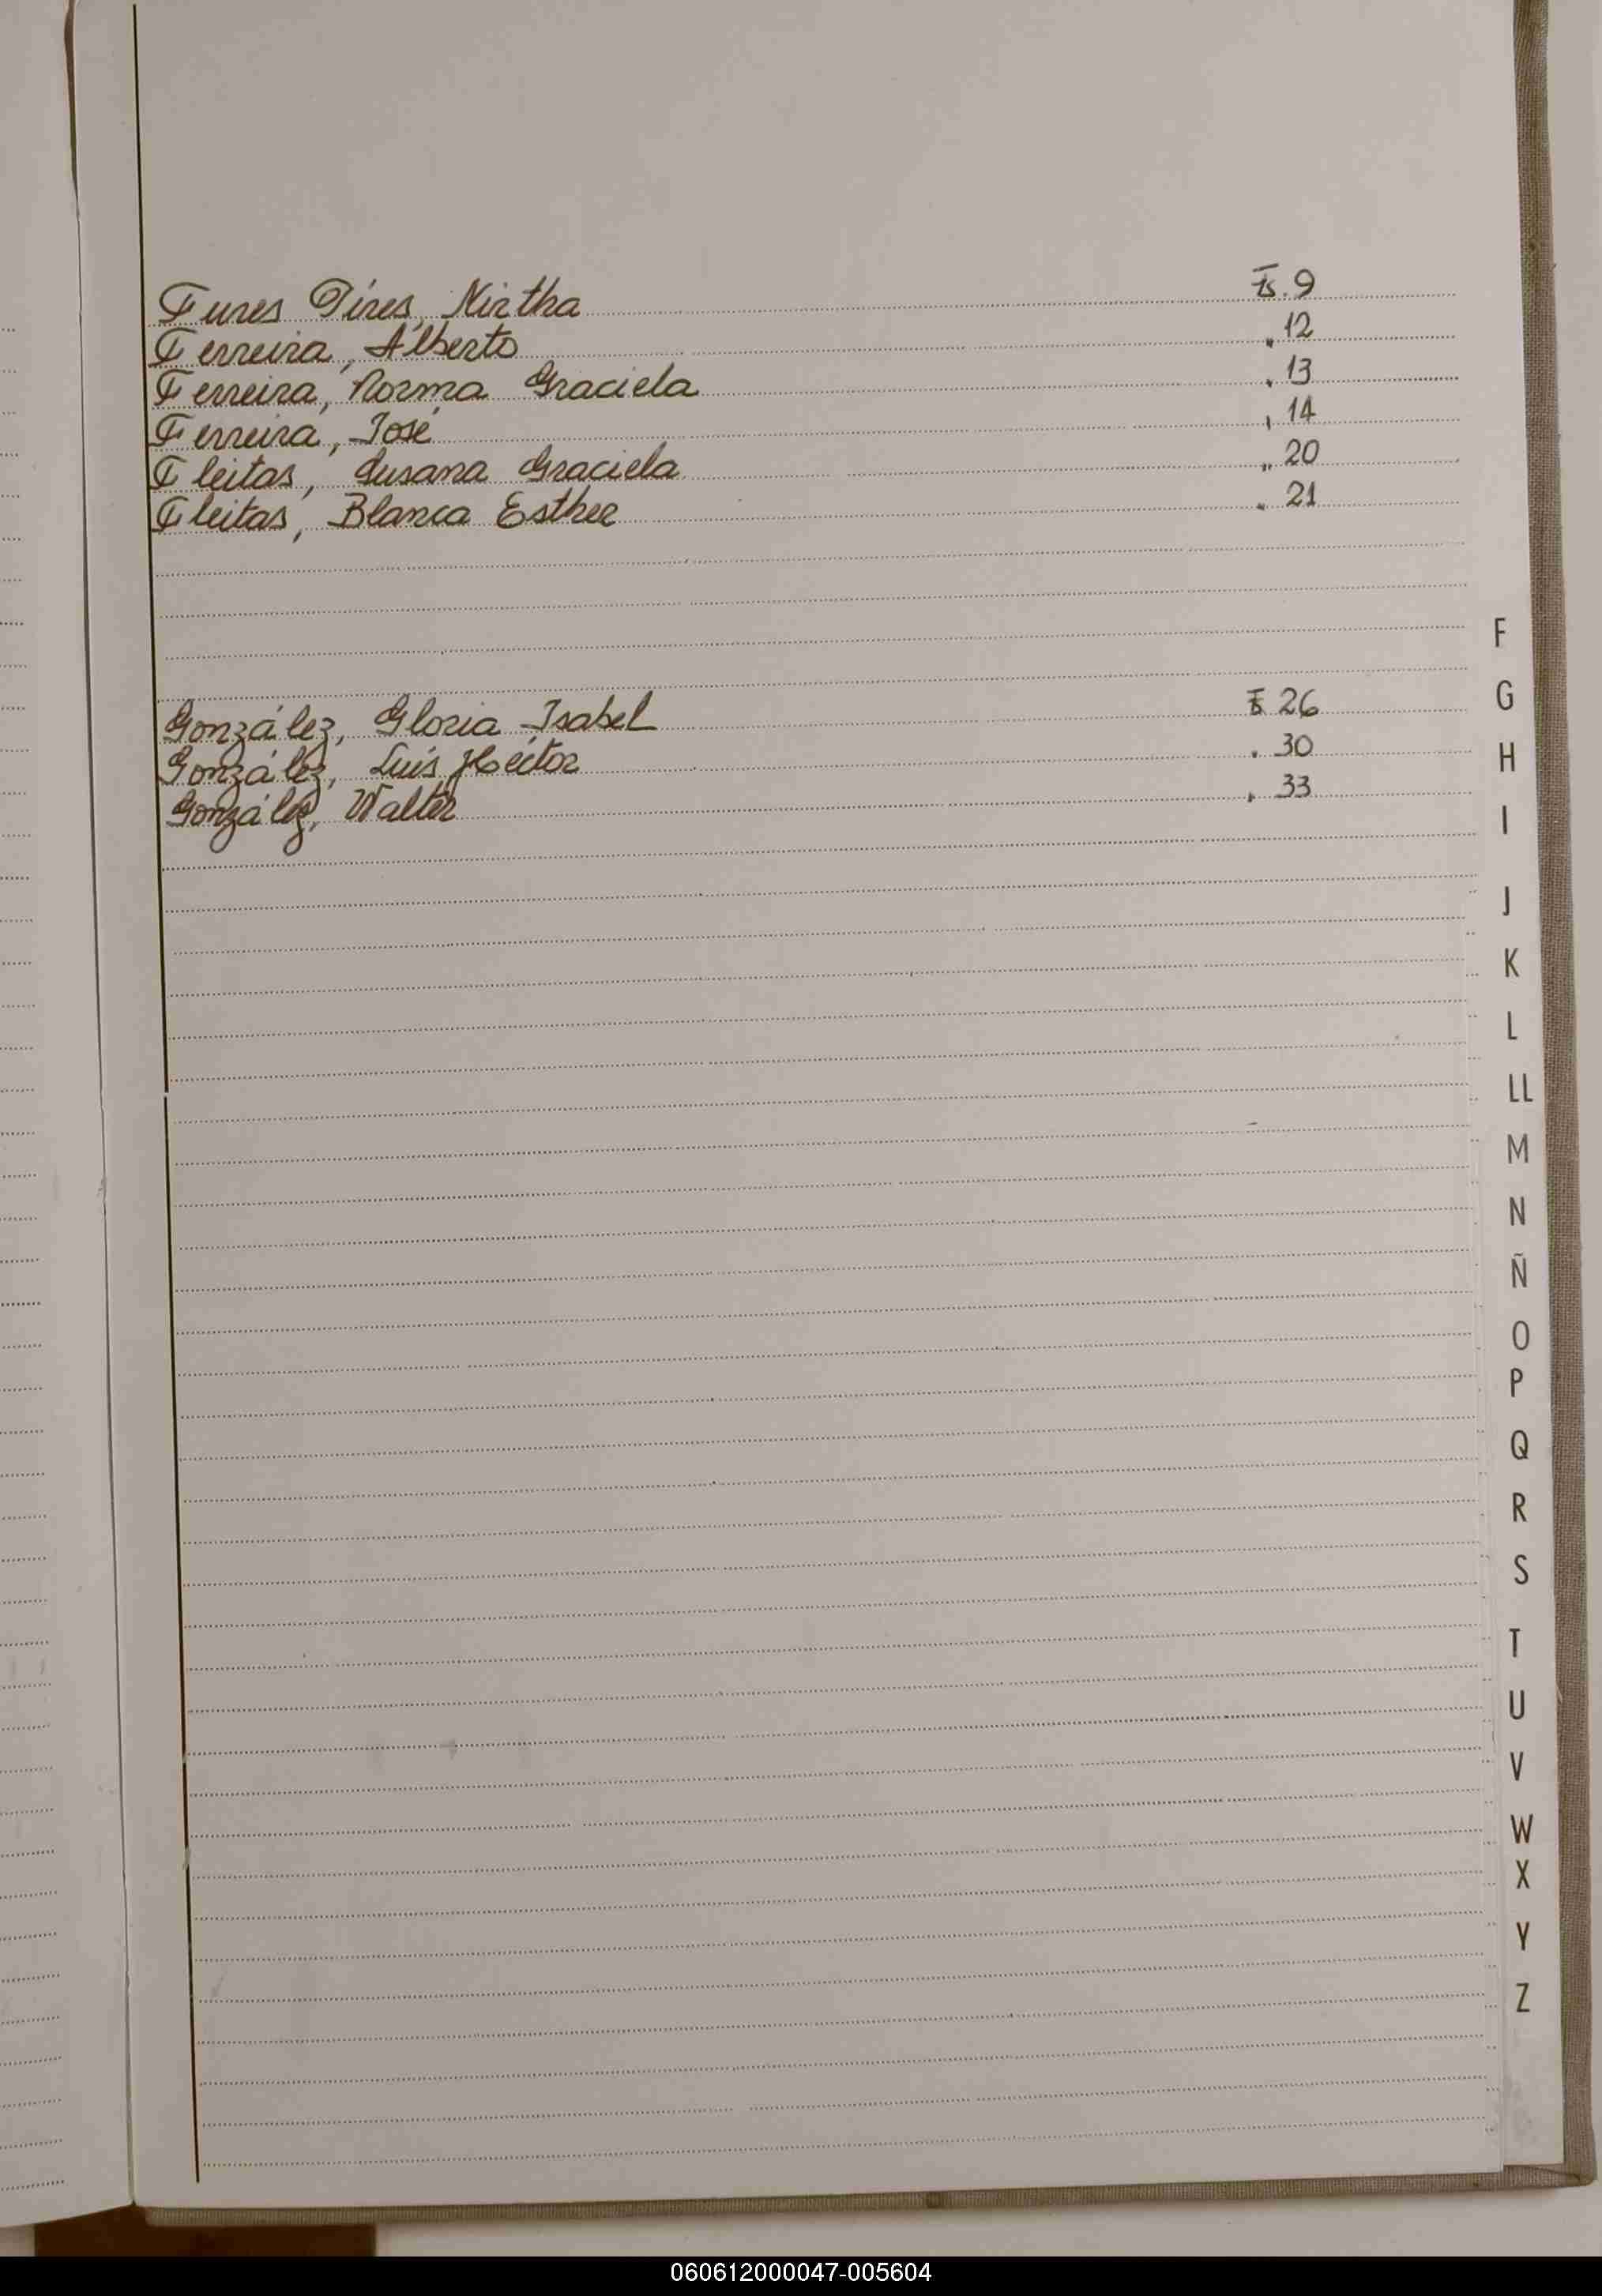 Funes Pires, Mirtha Fs. 9
Ferreira, Alberto " 12
Ferreira, Norma Graciela " 13
Ferreira, José " 14
Fleitas, Susana Graciela " 20
Fleitas, Blanca Esther " 21
F
González, Gloria Isabel Fs 26
G
González, Luis Héctor " 30
H
González, Walter " 33
I
J
K
L
LL
M
N
Ñ
O
P
Q
R
S
T
U
V
W
X
Y
Z
060612000047-005604